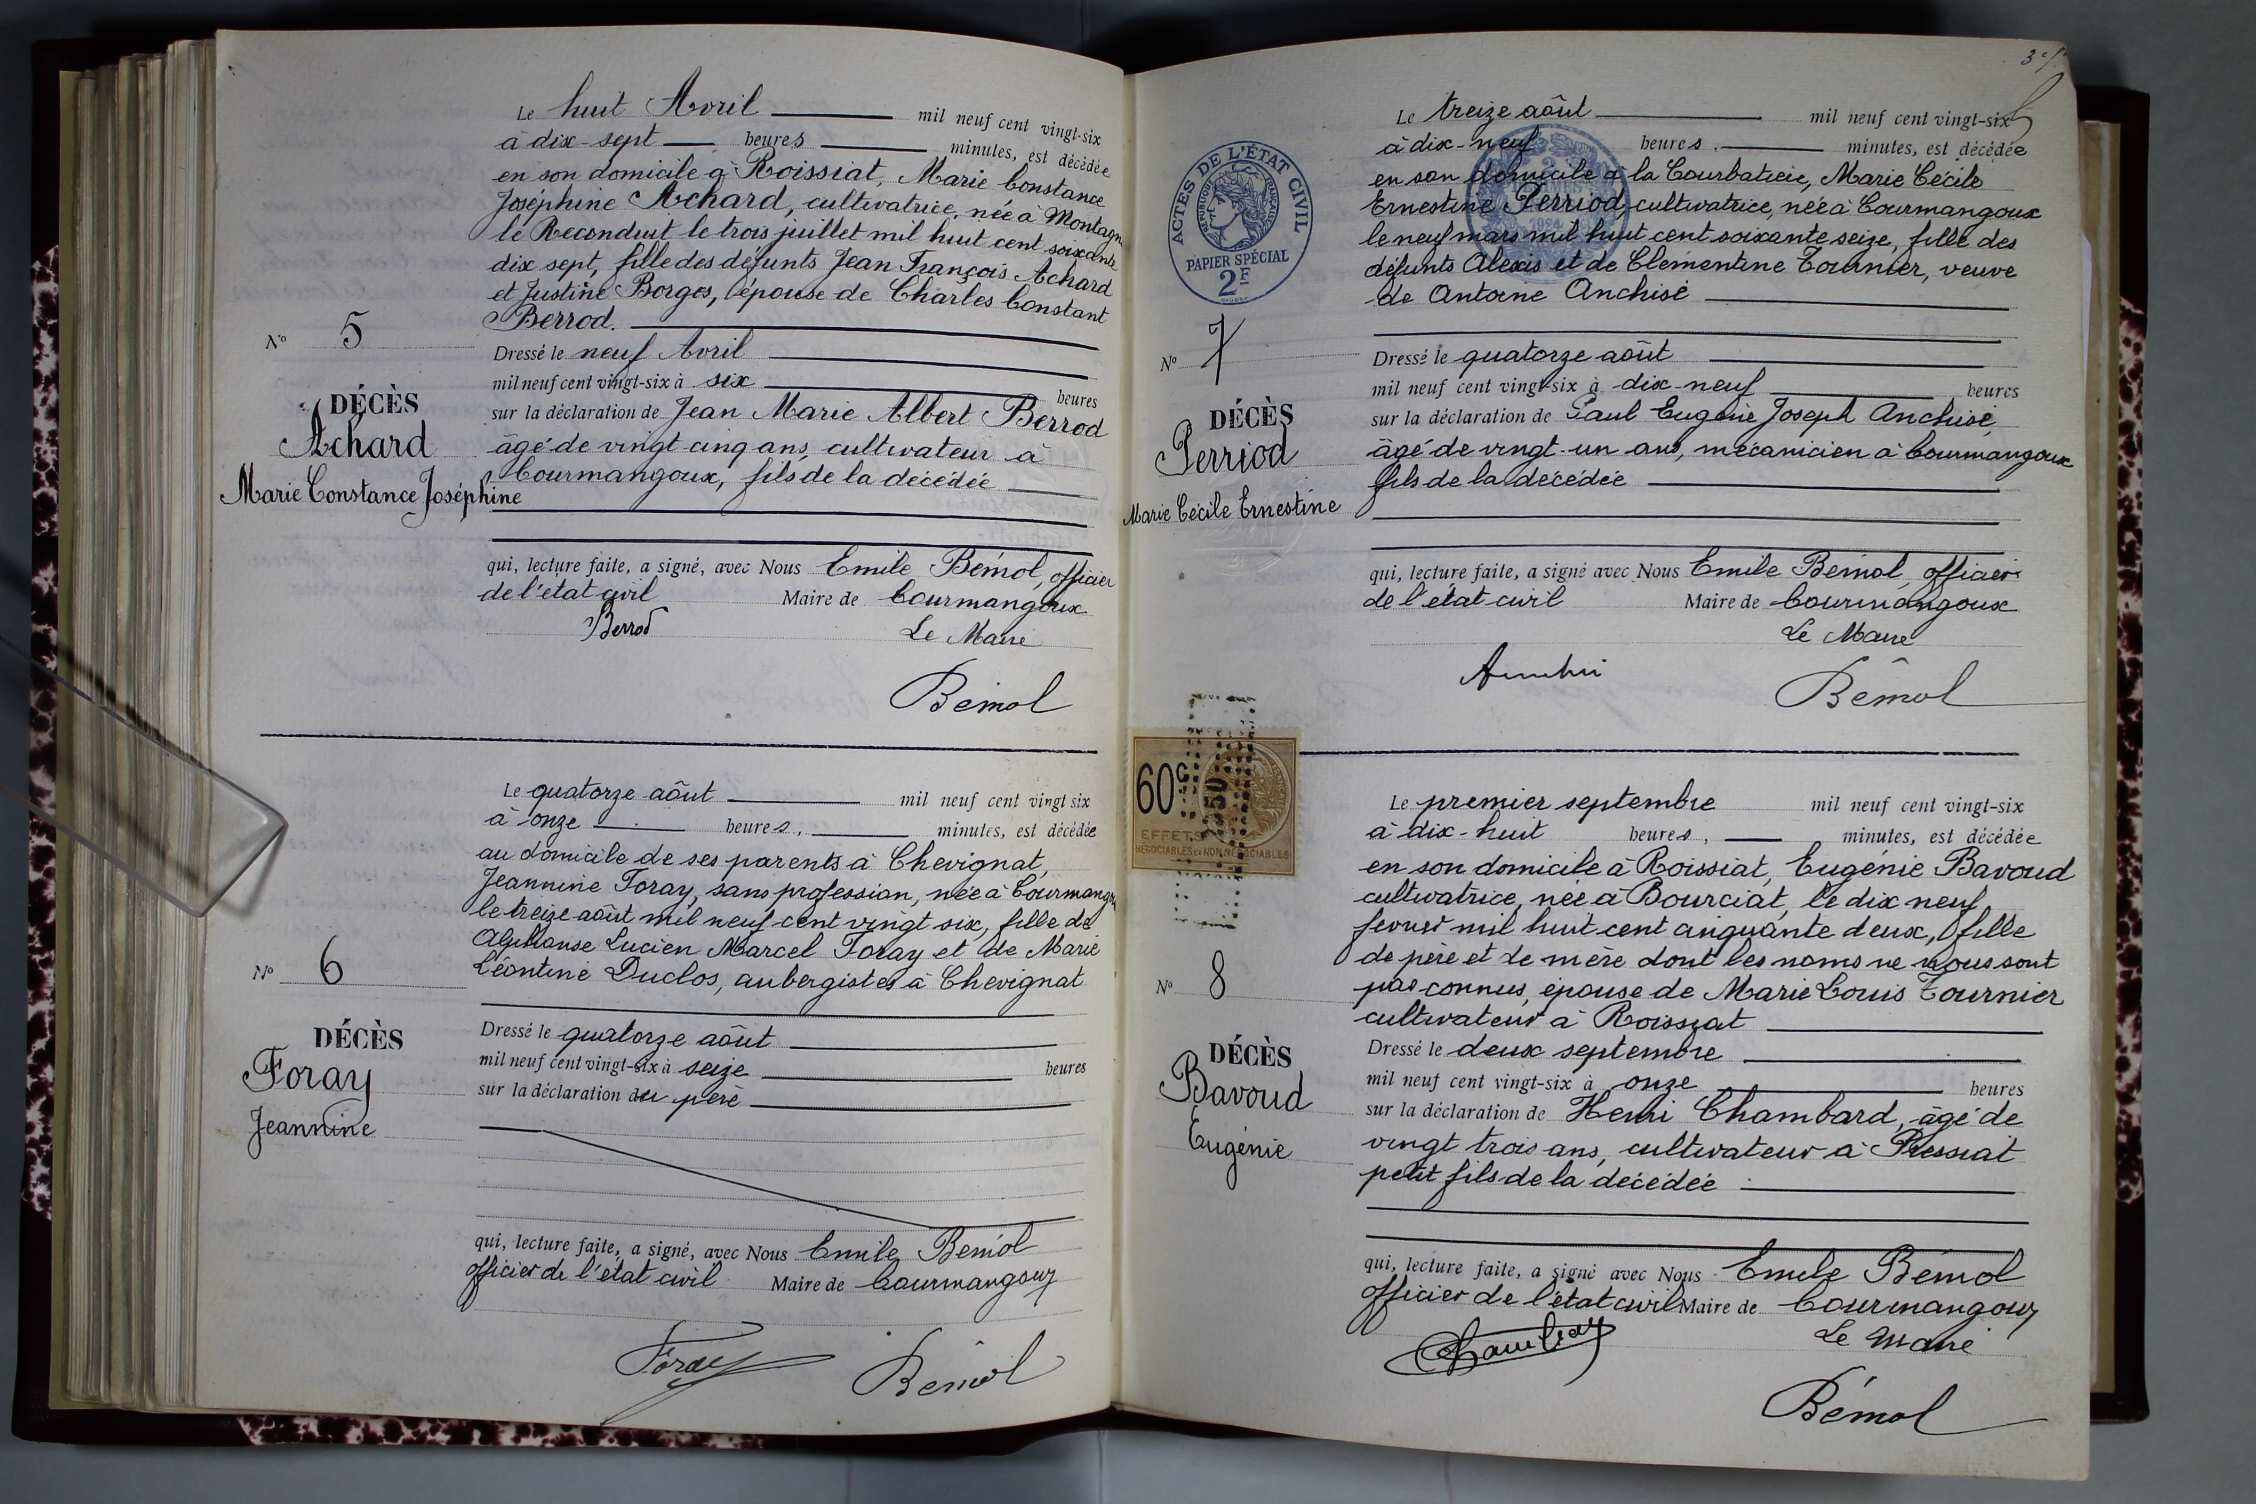 Le huit Avril mil neuf cent vingt-six
à dix-sept heures minutes, est décédée
en son domicile à Roissiat, Marie Constance
Joséphine Achard, cultivatrice, née à Montagna
le Reconduit le trois juillet mil huit cent soixante
dix sept, fille des défunts Jean François Achard
et Justine Borges, épouse de Charles Constant
Berrod.
N° 5
Dressé le neuf Avril
mil neuf cent vingt-six à six heures
DÉCÈS
Achard
Marie Constance Joséphine
sur la déclaration de Jean Marie Albert Berrod
âgé de vingt cinq ans, cultivateur à
Courmangoux, fils de la décédée
qui, lecture faite, a signé, avec Nous Emile Bémol, officier
de l'état civil Maire de Courmangoux
Berrod Le Maire
Bémol
Le quatorze août mil neuf cent vingt six
à onze heures, minutes, est décédée
au domicile de ses parents à Chevignat,
Jeannine Foray, sans profession, née à Courmangoux
le treize août mil neuf cent vingt six, fille de
Alphonse Lucien Marcel Foray et de Marie
Léontine Duclos, aubergistes à Chevignat
N° 6
DÉCÈS
Foray
Jeannine
Dressé le quatorze août
mil neuf cent vingt-six à seize heures
sur la déclaration du père
qui, lecture faite, a signé, avec Nous Emile Bémol
officier de l'état civil Maire de Courmangoux
Foray Bémol
Le treize août mil neuf cent vingt-six
à dix-neuf heures minutes, est décédée
en son domicile à la Courbatière, Marie Cécile
Ernestine Perriod, cultivatrice, née à Courmangoux
le neuf mars mil huit cent soixante seize, fille des
défunts Alexis et de Clémentine Tournier, veuve
de Antoine Anchisi
ACTES DE L'ÉTAT CIVIL
RÉPUBLIQUE FRANÇAISE
PAPIER SPÉCIAL
2F
N° 7
DÉCÈS
Perriod
Marie Cécile Ernestine
Dressé le quatorze août
mil neuf cent vingt-six à dix-neuf heures
sur la déclaration de Paul Eugène Joseph Anchisi,
âgé de vingt-un ans, mécanicien à Courmangoux
fils de la décédée
qui, lecture faite, a signé avec Nous Emile Bémol, officier
de l'état civil Maire de Courmangoux
Le Maire
Anchisi
Bémol
60c
EFFETS
NÉGOCIABLES ET NON NÉGOCIABLES
Le premier septembre mil neuf cent vingt-six
à dix-huit heures, minutes, est décédée
en son domicile à Roissiat, Eugénie Bavoud
cultivatrice, née à Bourciat, le dix neuf
fevrier mil huit cent cinquante deux, fille
de père et de mère dont les noms ne nous sont
pas connus, épouse de Marie Louis Tournier
cultivateur à Roissiat
N° 8
DÉCÈS
Bavoud
Eugénie
Dressé le deux septembre
mil neuf cent vingt-six à onze heures
sur la déclaration de Henri Chambard, âgé de
vingt trois ans, cultivateur à Pressiat
petit fils de la décédée
qui, lecture faite, a signé avec Nous Emile Bémol
officier de l'état civil Maire de Courmangoux
Le Maire
Bémol